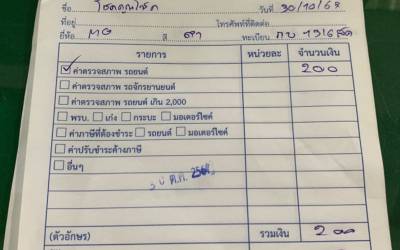 ชื่อ โชคคูณโชค วันที่ 30/10/68
ที่อยู่ โทรศัพท์ที่ติดต่อ
ยี่ห้อ MG สี ดำ ทะเบียน
รายการ หน่วยละ จำนวนเงิน
ค่าตรวจสภาพ รถยนต์ 200
ค่าตรวจสภาพ รถจักรยานยนต์
ค่าตรวจสภาพ รถยนต์ เกิน 2,000
พรบ. เก๋ง กระบะ มอเตอร์ไซค์
ค่าภาษีที่ต้องชำระ รถยนต์ มอเตอร์ไซค์
ค่าปรับชำระค้างภาษี
อื่นๆ
ต.ค.
(ตัวอักษร) รวมเงิน 200